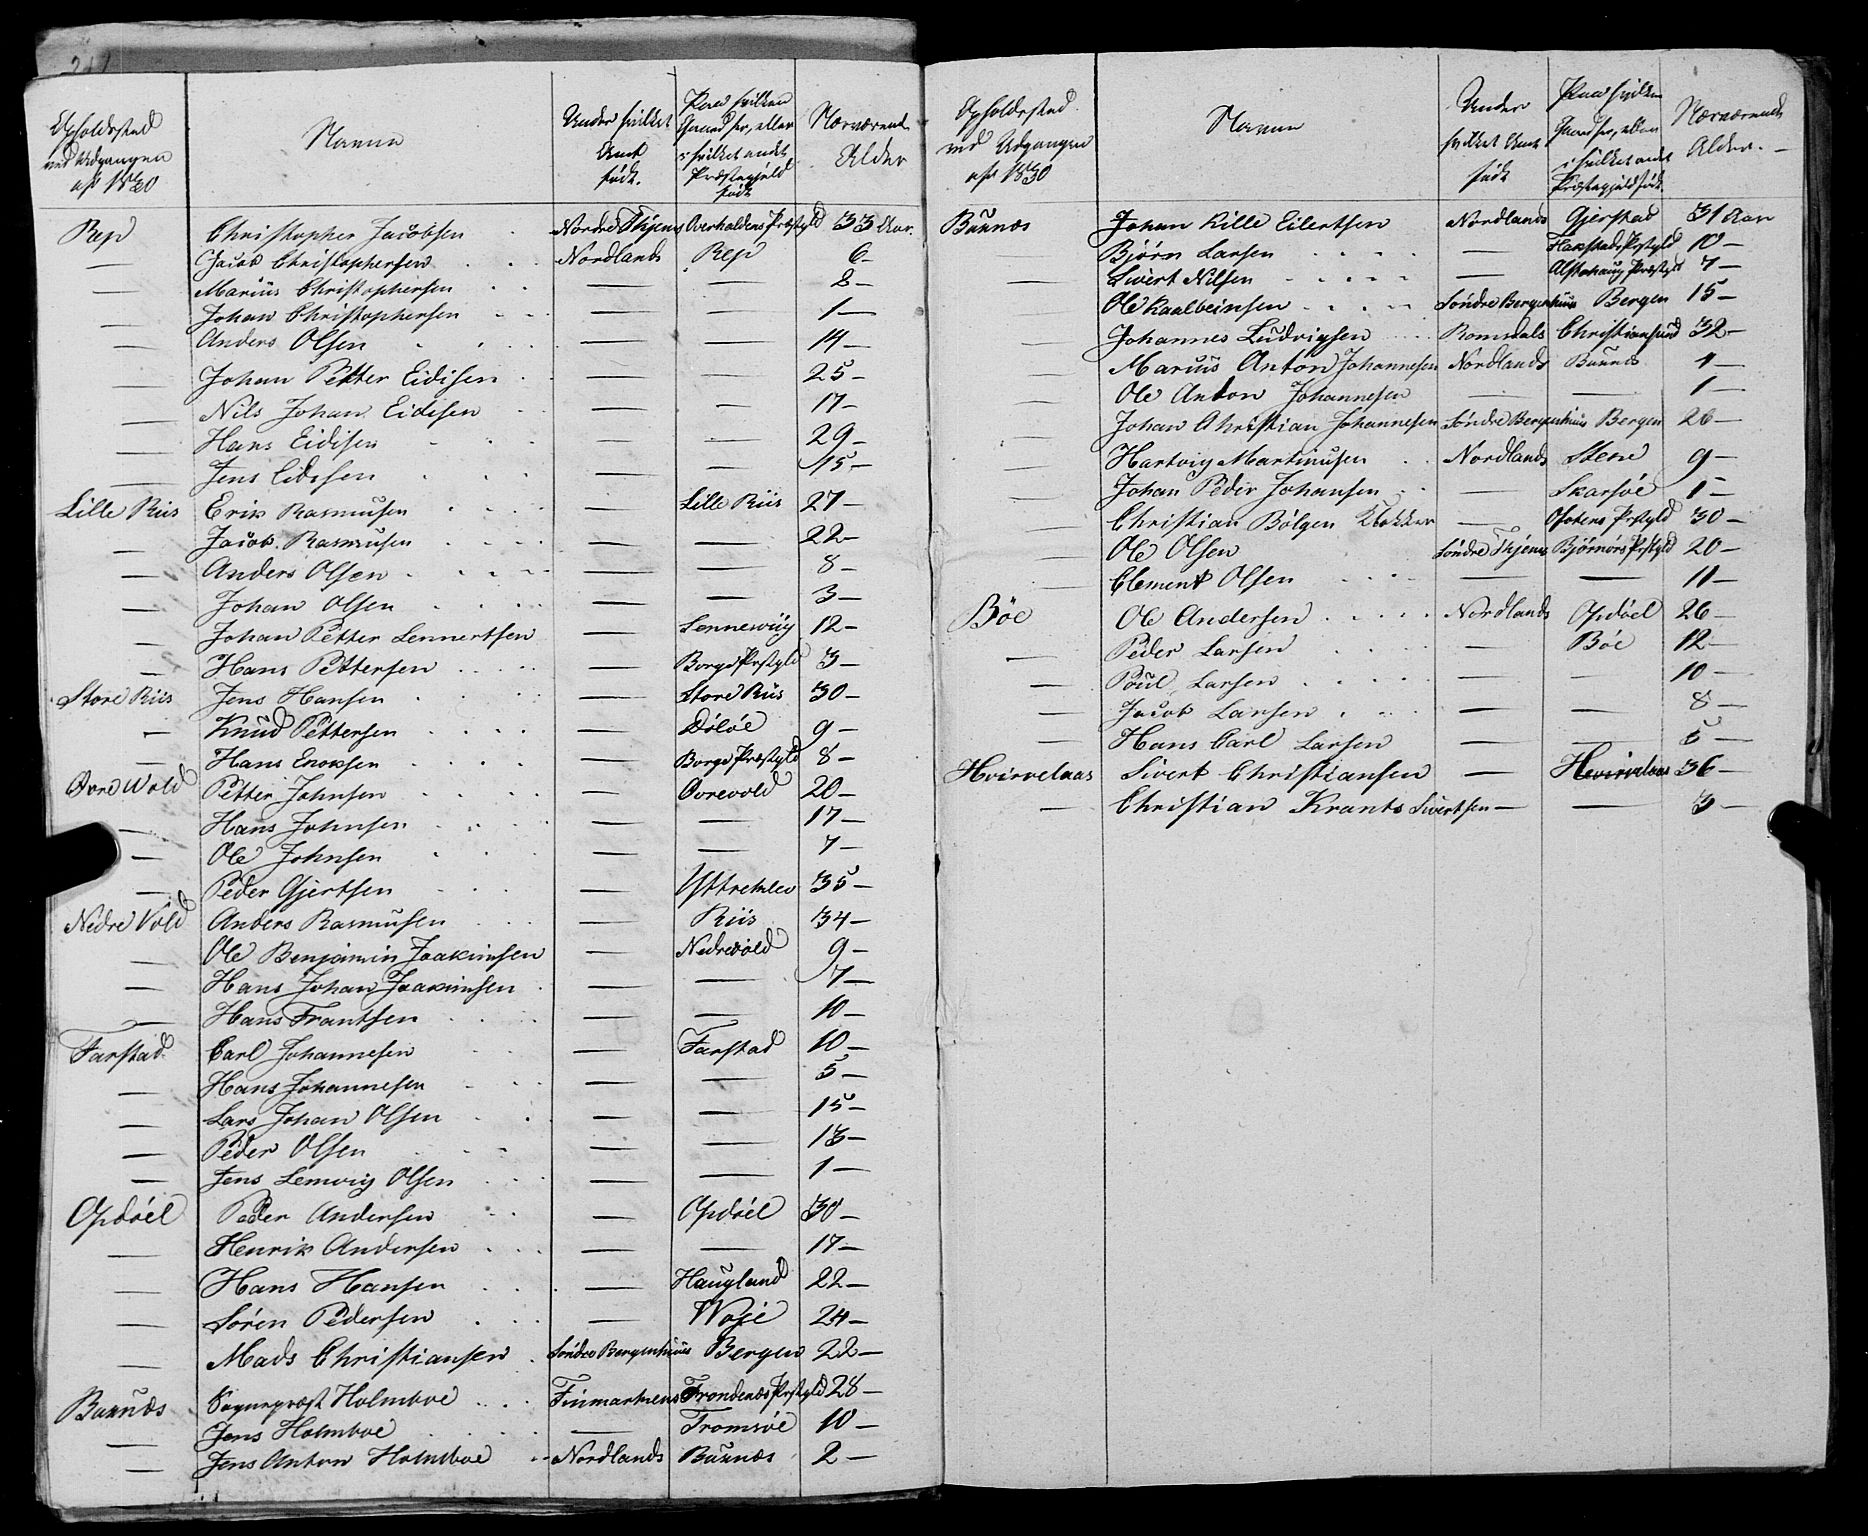 Opholdssted ved Udgangen af 1830 | Navne | Under hvilket Amt født. | Paa hvilken Gaard her, eller i hvilket andet Præstegjeld født | Nærværende Alder
Rep | Christopher Jacobsen | Nordre Thjems | Overhaldens Præstgld | 33 Aar
— | Jacob Christophersen | Nordlands | Rep | 6 —
— | Marius Christophersen | — | — | 8 —
— | Johan Christophersen | — | — | 1 —
— | Anders Olsen | — | — | 14 —
— | Johan Petter Eidisen | — | — | 25 —
— | Nils Johan Eidisen | — | — | 17 —
— | Hans Eidisen | — | — | 29 —
— | Jens Eidisen | — | — | 15 —
Lille Riis | Erik Rasmusen | — | Lille Riis | 27 —
— | Jacob Rasmusen | — | — | 22 —
— | Anders Olsen | — | — | 8 —
— | Johan Olsen | — | — | 3 —
— | Johan Petter Lennertsen | — | Sennesviig | 12 —
— | Hans Pettersen | — | Borge Prstgld | 3 —
Store Riis | Jens Hansen | — | Store Riis | 30 —
— | Knud Pettersen | — | Døløe | 9 —
— | Hans Enoksen | — | Borge Præstgld | 8 —
Øvre Vold | Petter Johnsen | — | Øvrevold | 20 —
— | Hans Johnsen | — | — | 17 —
— | Ole Johnsen | — | — | 7 —
— | Peder Gjertsen | — | Yttreklev | 35 —
Nedre Vold | Anders Rasmusen | — | Riis | 34 —
— | Ole Benjamin Joakimsen | — | Nedrevold | 9 —
— | Hans Johan Joakimsen | — | — | 7 —
— | Hans Frantsen | — | — | 10 —
Farstad | Carl Johannesen | — | Farstad | 10 —
— | Hans Johannesen | — | — | 5 —
— | Lars Johan Olsen | — | — | 15 —
— | Peder Olsen | — | — | 13 —
— | Jens Lemvig Olsen | — | — | 1 —
Opdøel | Peder Andersen | — | Opdøel | 30 —
— | Henrik Andersen | — | — | 17 —
— | Hans Hansen | — | Haugland | 22 —
— | Søren Pedersen | — | Woje | 24 —
— | Mads Christiansen | Søndre Bergenhuus | Bergen | 22 —
Buxnæs | Sognepræst Holmboe | Finmarkens | Trondenæs Prstgld | 28 —
— | Jens Holmboe | — | Tromsøe | 10 —
— | Jens Anton Holmboe | Nordlands | Buxnæs | 2 —
Opholdssted ved Udgangen af 1830 | Navne | Under hvilket Amt født | Paa hvilken Gaard her, eller i hvilket andet Præstegjeld født | Nærværende Alder. —
Buxnæs | Johan Lille Eilertsen | Nordlands | Gjerstad | 31 Aar
— | Bjørn Larsen | — | Flakstads Prstgld | 10 —
— | Sivert Nilsen | — | Alstahaug Præstgld | 7 —
— | Ole Kaalbeinsen | Søndre Bergenhuus | Bergen | 15 —
— | Johannes Ludvigsen | Romsdals | Christiansund | 32 —
— | Marius Anton Johannesen | Nordlands | Buxnæs | 4 —
— | Ole Anton Johannesen | — | — | 1 —
— | Johan Christian Johannesen | Søndre Bergenhuus | Bergen | 26 —
— | Hartvig Martinusen | Nordlands | Stene | 9 —
— | Johan Peder Johansen | — | Skarsøe | 1 —
— | Christian Bølgen Klokker | — | Ofotens Prstgld | 30 —
— | Ole Olsen | Søndre Thjems | Bjørnørs Prstgld | 20 —
— | Clement Olsen | — | — | 11 —
Bøe | Ole Andersen | Nordlands | Opdøel | 26 —
— | Peder Larsen | — | Bøe | 12 —
— | Poul Larsen | — | — | 10 —
— | Jacob Larsen | — | — | 8 —
— | Hans Carl Larsen | — | — | 5 —
Hvirvelaas | Sivert Christiansen | — | Hvirvelaas | 36 —
— | Christian Krants Sivertsen | — | — | 3 —